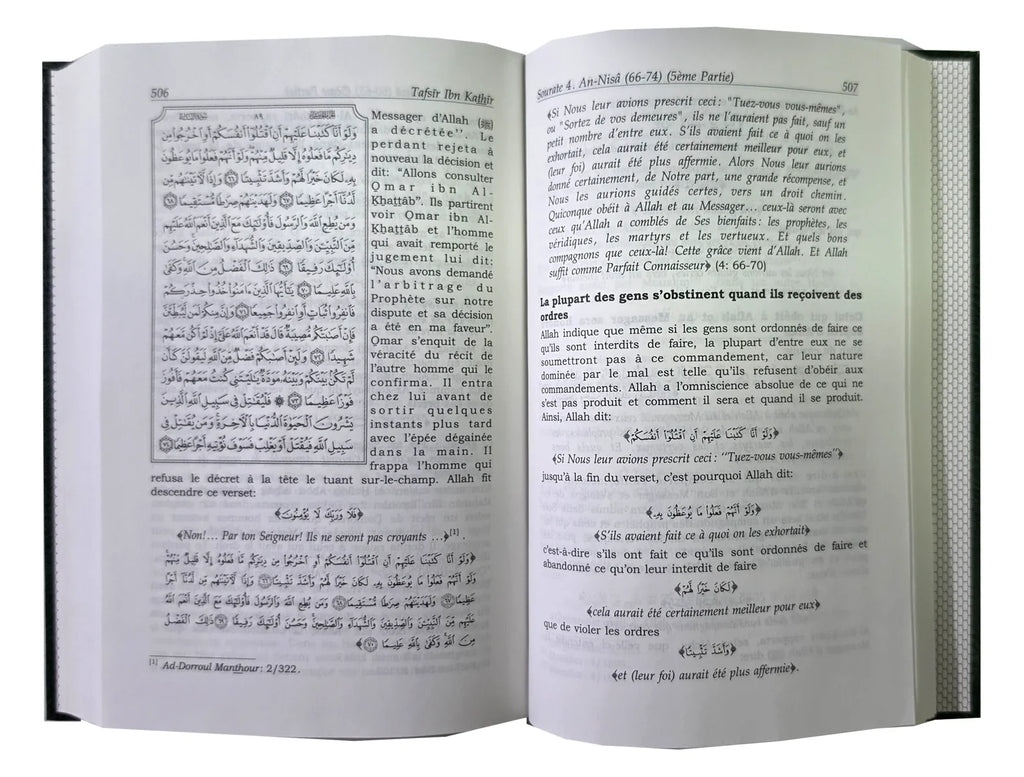 506 Tafsîr Ibn Kathîr
٨٩
وَلَوْ أَنَّا كَتَبْنَا عَلَيْهِمْ أَنِ ٱقْتُلُوٓا۟ أَنفُسَكُمْ أَوِ ٱخْرُجُوا۟ مِن
دِيَٰرِكُم مَّا فَعَلُوهُ إِلَّا قَلِيلٌ مِّنْهُمْ وَلَوْ أَنَّهُمْ فَعَلُوا۟ مَا يُوعَظُونَ
بِهِۦ لَكَانَ خَيْرًا لَّهُمْ وَأَشَدَّ تَثْبِيتًا ٦٦ وَإِذًا لَّءَاتَيْنَٰهُم مِّن
لَّدُنَّآ أَجْرًا عَظِيمًا ٦٧ وَلَهَدَيْنَٰهُمْ صِرَٰطًا مُّسْتَقِيمًا ٦٨
وَمَن يُطِعِ ٱللَّهَ وَٱلرَّسُولَ فَأُو۟لَٰٓئِكَ مَعَ ٱلَّذِينَ أَنْعَمَ ٱللَّهُ عَلَيْهِم
مِّنَ ٱلنَّبِيِّۦنَ وَٱلصِّدِّيقِينَ وَٱلشُّهَدَآءِ وَٱلصَّٰلِحِينَ وَحَسُنَ
أُو۟لَٰٓئِكَ رَفِيقًا ٦٩ ذَٰلِكَ ٱلْفَضْلُ مِنَ ٱللَّهِ وَكَفَىٰ
بِٱللَّهِ عَلِيمًا ٧٠ يَٰٓأَيُّهَا ٱلَّذِينَ ءَامَنُوا۟ خُذُوا۟ حِذْرَكُمْ
فَٱنفِرُوا۟ ثُبَاتٍ أَوِ ٱنفِرُوا۟ جَمِيعًا ٧١ وَإِنَّ مِنكُمْ لَمَن لَّيُبَطِّئَنَّ
فَإِنْ أَصَٰبَتْكُم مُّصِيبَةٌ قَالَ قَدْ أَنْعَمَ ٱللَّهُ عَلَىَّ إِذْ لَمْ أَكُن مَّعَهُمْ
شَهِيدًا ٧٢ وَلَئِنْ أَصَٰبَكُمْ فَضْلٌ مِّنَ ٱللَّهِ لَيَقُولَنَّ كَأَن
لَّمْ تَكُنۢ بَيْنَكُمْ وَبَيْنَهُۥ مَوَدَّةٌ يَٰلَيْتَنِى كُنتُ مَعَهُمْ فَأَفُوزَ
فَوْزًا عَظِيمًا ٧٣ ۞ فَلْيُقَٰتِلْ فِى سَبِيلِ ٱللَّهِ ٱلَّذِينَ
يَشْرُونَ ٱلْحَيَوٰةَ ٱلدُّنْيَا بِٱلْءَاخِرَةِ وَمَن يُقَٰتِلْ فِى
سَبِيلِ ٱللَّهِ فَيُقْتَلْ أَوْ يَغْلِبْ فَسَوْفَ نُؤْتِيهِ أَجْرًا عَظِيمًا ٧٤
Messager d'Allah (ﷺ)
a décrétée". Le
perdant rejeta à
nouveau la décision et
dit: "Allons consulter
Omar ibn Al-
Khattâb". Ils partirent
voir Omar ibn Al-
Khattâb et l'homme
qui avait remporté le
jugement lui dit:
"Nous avons demandé
l'arbitrage du
Prophète sur notre
dispute et sa décision
a été en ma faveur".
Omar s'enquit de la
véracité du récit de
l'autre homme qui le
confirma. Il entra
chez lui avant de
sortir quelques
instants plus tard
avec l'épée dégainée
dans la main. Il
frappa l'homme qui
refusa le décret à la tête le tuant sur-le-champ. Allah fit
descendre ce verset:
﴿فَلَا وَرَبِّكَ لَا يُؤْمِنُونَ﴾
﴾Non!... Par ton Seigneur! Ils ne seront pas croyants ...﴿[1] .
﴿وَلَوْ أَنَّا كَتَبْنَا عَلَيْهِمْ أَنِ ٱقْتُلُوٓا۟ أَنفُسَكُمْ أَوِ ٱخْرُجُوا۟ مِن دِيَٰرِكُم مَّا فَعَلُوهُ إِلَّا قَلِيلٌ مِّنْهُمْ
وَلَوْ أَنَّهُمْ فَعَلُوا۟ مَا يُوعَظُونَ بِهِۦ لَكَانَ خَيْرًا لَّهُمْ وَأَشَدَّ تَثْبِيتًا ٦٦ وَإِذًا لَّءَاتَيْنَٰهُم مِّن لَّدُنَّآ أَجْرًا
عَظِيمًا ٦٧ وَلَهَدَيْنَٰهُمْ صِرَٰطًا مُّسْتَقِيمًا ٦٨ وَمَن يُطِعِ ٱللَّهَ وَٱلرَّسُولَ فَأُو۟لَٰٓئِكَ مَعَ ٱلَّذِينَ أَنْعَمَ ٱللَّهُ
عَلَيْهِم مِّنَ ٱلنَّبِيِّۦنَ وَٱلصِّدِّيقِينَ وَٱلشُّهَدَآءِ وَٱلصَّٰلِحِينَ وَحَسُنَ أُو۟لَٰٓئِكَ رَفِيقًا ٦٩ ذَٰلِكَ ٱلْفَضْلُ
مِنَ ٱللَّهِ وَكَفَىٰ بِٱللَّهِ عَلِيمًا ٧٠﴾
[1] Ad-Dorroul Manthour: 2/322.
Sourate 4. An-Nisâ (66-74) (5ème Partie) 507
﴾Si Nous leur avions prescrit ceci: "Tuez-vous vous-mêmes",
ou "Sortez de vos demeures", ils ne l'auraient pas fait, sauf un
petit nombre d'entre eux. S'ils avaient fait ce à quoi on les
exhortait, cela aurait été certainement meilleur pour eux, et
(leur foi) aurait été plus affermie. Alors Nous leur aurions
donné certainement, de Notre part, une grande récompense, et
Nous les aurions guidés certes, vers un droit chemin.
Quiconque obéit à Allah et au Messager... ceux-là seront avec
ceux qu'Allah a comblés de Ses bienfaits: les prophètes, les
véridiques, les martyrs et les vertueux. Et quels bons
compagnons que ceux-là! Cette grâce vient d'Allah. Et Allah
suffit comme Parfait Connaisseur﴿ (4: 66-70)
La plupart des gens s'obstinent quand ils reçoivent des
ordres
Allah indique que même si les gens sont ordonnés de faire ce
qu'ils sont interdits de faire, la plupart d'entre eux ne se
soumettront pas à ce commandement, car leur nature
dominée par le mal est telle qu'ils refusent d'obéir aux
commandements. Allah a l'omniscience absolue de ce qui ne
s'est pas produit et comment il sera et quand il se produit.
Ainsi, Allah dit:
﴿وَلَوْ أَنَّا كَتَبْنَا عَلَيْهِمْ أَنِ ٱقْتُلُوٓا۟ أَنفُسَكُمْ﴾
﴾Si Nous leur avions prescrit ceci: "Tuez-vous vous-mêmes"﴿
jusqu'à la fin du verset, c'est pourquoi Allah dit:
﴿وَلَوْ أَنَّهُمْ فَعَلُوا۟ مَا يُوعَظُونَ بِهِۦ﴾
﴾S'ils avaient fait ce à quoi on les exhortait﴿
c'est-à-dire s'ils ont fait ce qu'ils sont ordonnés de faire et
abandonné ce qu'on leur interdit de faire
﴿لَكَانَ خَيْرًا لَّهُمْ﴾
﴾cela aurait été certainement meilleur pour eux﴿
que de violer les ordres
﴿وَأَشَدَّ تَثْبِيتًا﴾
﴾et (leur foi) aurait été plus affermie﴿.